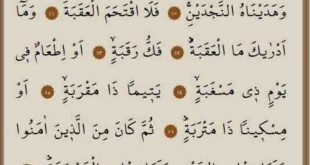 وَهَدَيْنَاهُ النَّجْدَيْنِۚ ١٠ فَلَا اقْتَحَمَ الْعَقَبَةَۘ ١١ وَمَٓا
اَدْرٰيكَ مَا الْعَقَبَةُۜ ١٢ فَكُّ رَقَبَةٍۙ ١٣ اَوْ اِطْعَامٌ ف۪ي
يَوْمٍ ذ۪ي مَسْغَبَةٍۙ ١٤ يَت۪يمًا ذَا مَقْرَبَةٍۙ ١٥ اَوْ
مِسْك۪ينًا ذَا مَتْرَبَةٍۜ ١٦ ثُمَّ كَانَ مِنَ الَّذ۪ينَ اٰمَنُوا